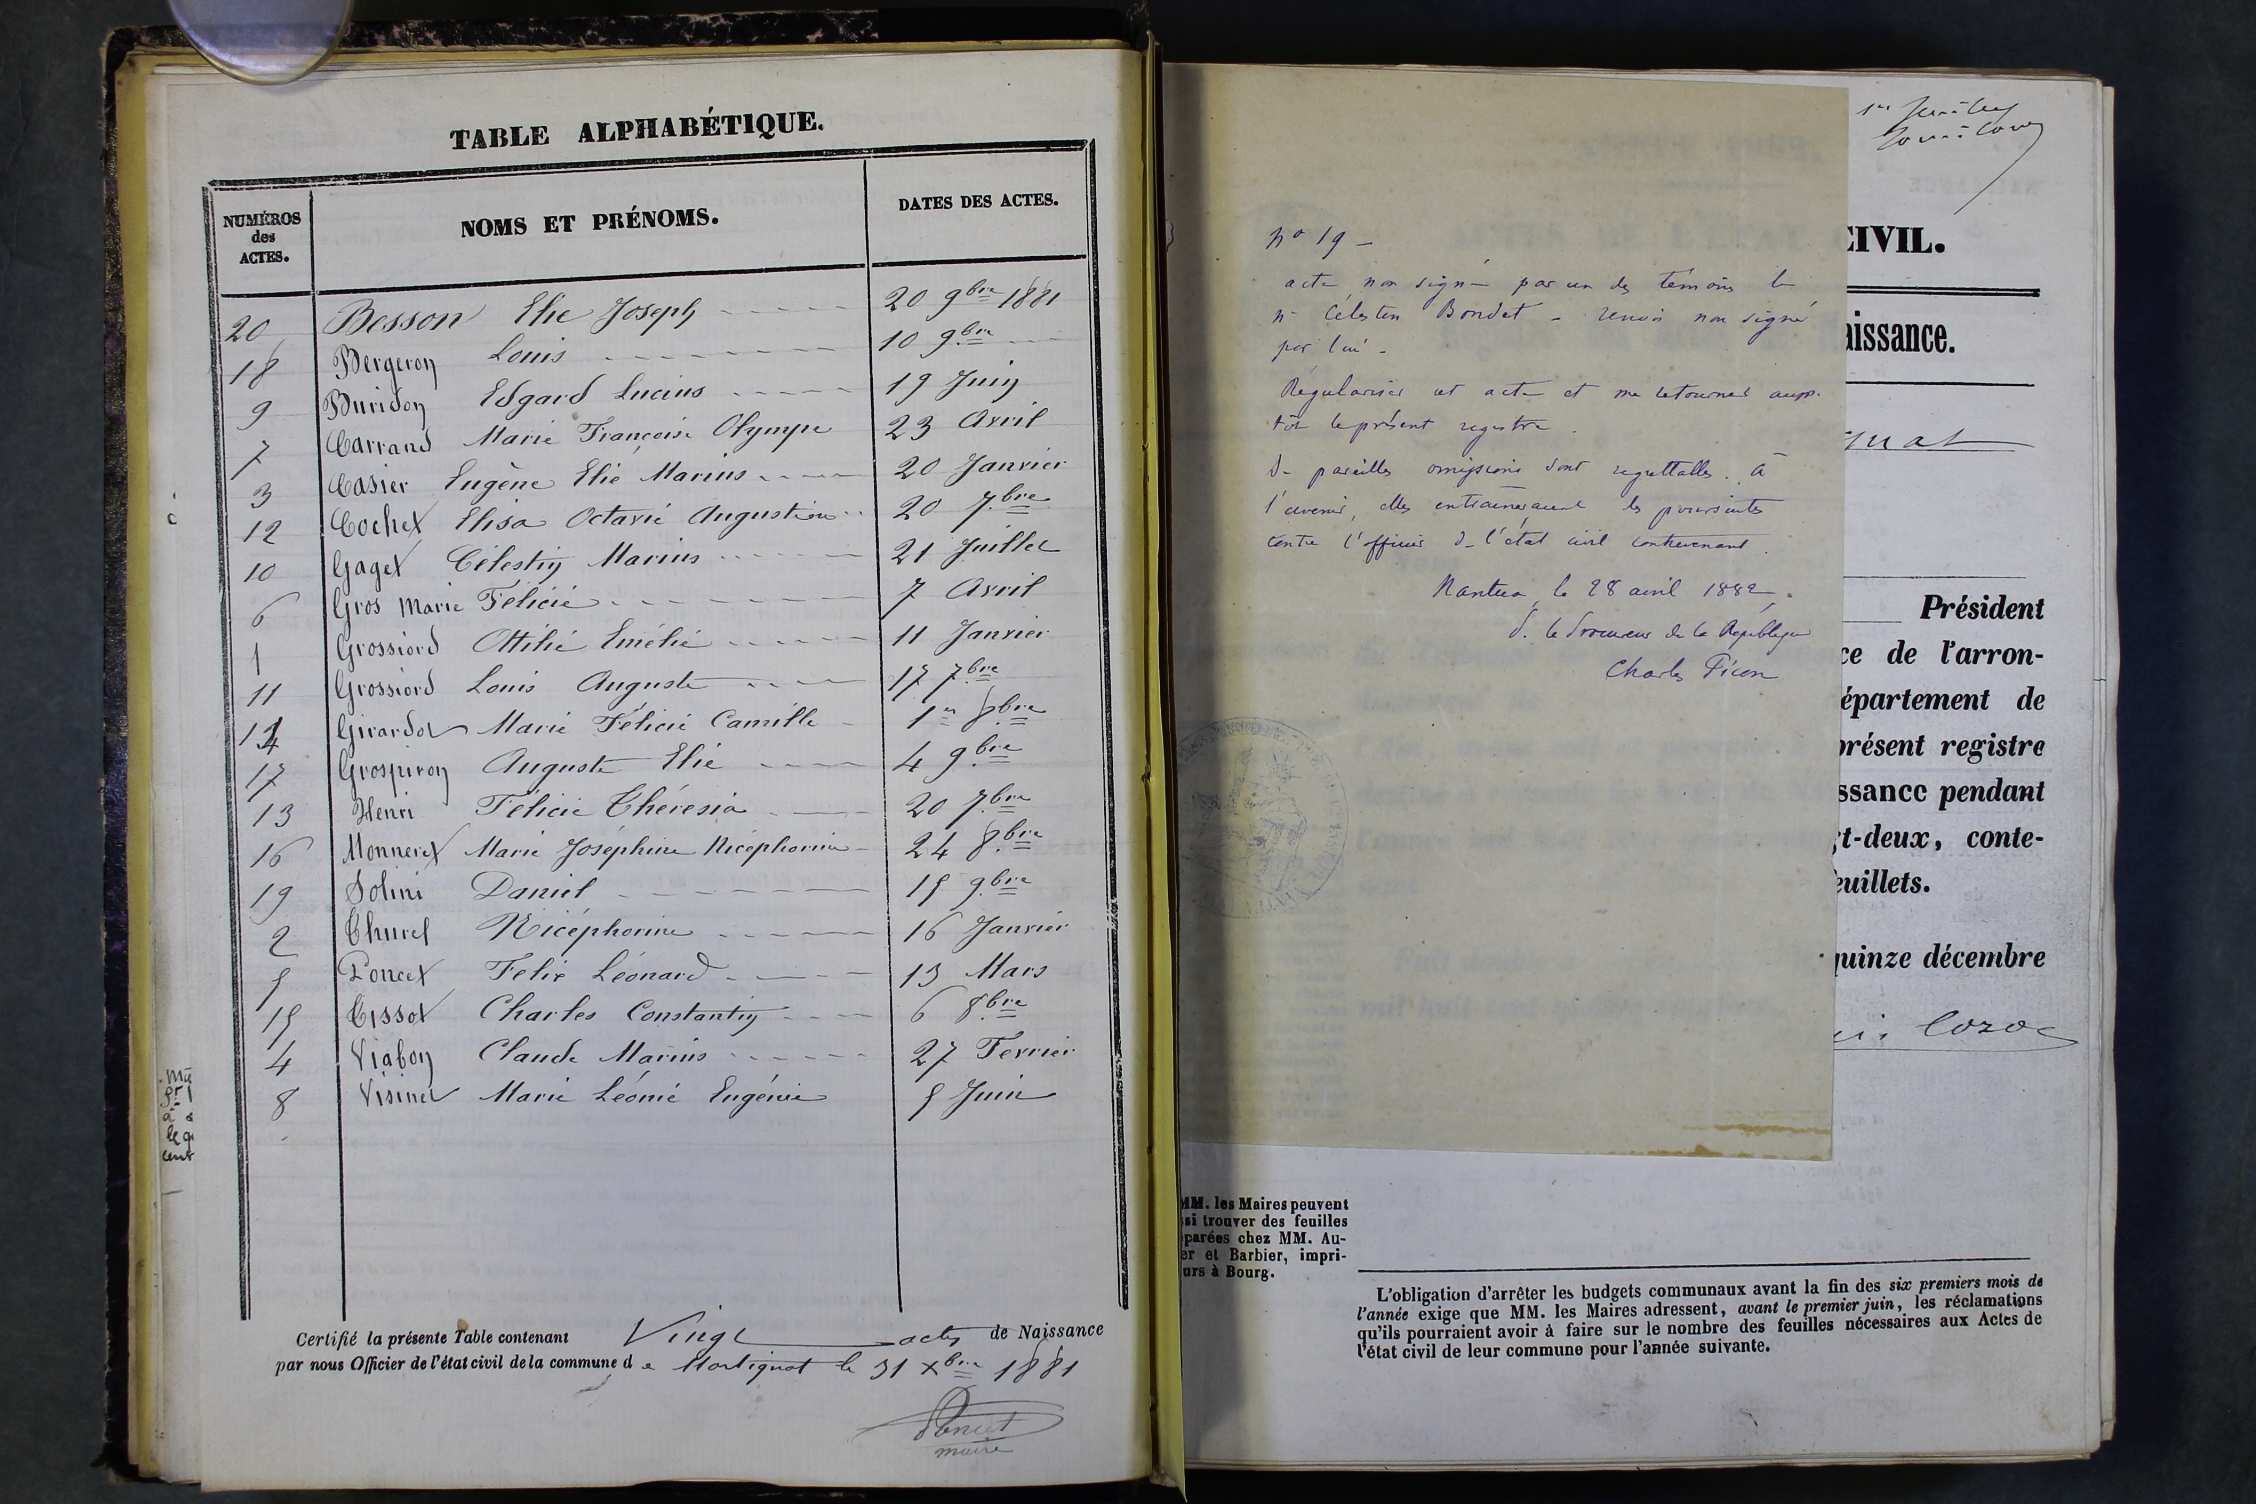 TABLE ALPHABÉTIQUE.
NUMÉROS des ACTES.
NOMS ET PRÉNOMS.
DATES DES ACTES.
20 Besson Elie Joseph 20 9bre 1881
18 Bergeron Louis 10 9bre
9 Buridon Edgard Lucius 19 Juin
7 Carrand Marie Françoise Olympe 23 Avril
3 Casier Eugène Elie Marius 20 Janvier
12 Cochet Elisa Octavie Augustine 20 7bre
10 Gaget Célestin Marius 21 Juillet
6 Gros Marie Félicie 7 Avril
1 Grossiord Ottilie Emélie 11 Janvier
11 Grossiord Louis Auguste 17 7bre
14 Girardot Marie Félicie Camille 1er 8bre
17 Grospiron Auguste Elie 4 9bre
13 Henri Félicie Thérésia 20 7bre
16 Monneret Marie Joséphine Nicéphorine 24 8bre
19 Solini Daniel 15 9bre
2 Thurel Nicéphorine 16 Janvier
5 Poncet Felix Léonard 13 Mars
15 Tissot Charles Constantin 6 8bre
4 Viabon Claude Marius 27 Fevrier
8 Visinet Marie Léonie Eugénie 5 Juin
Certifié la présente Table contenant Vingt actes de Naissance
par nous Officier de l'état civil de la commune de Martignat le 31 Xbre 1881
Poncet
maire
no 19 –
acte non signé par un des témoins le
né Célestin Bondet – renvoi non signé
par lui –
Régulariser cet acte et me retourner aussi-
tôt le présent registre.
De pareilles omissions sont regrettables. à
l'avenir, elles entraîneraient des poursuites
contre l'officier de l'état civil contrevenant.
Nantua, le 28 avril 1882.
P. le Procureur de la République
Charles Picon
CIVIL.
aissance.
gnat
Président
ce de l'arron-
épartement de
présent registre
ssance pendant
gt-deux, conte-
euillets.
quinze décembre
MM. les Maires peuvent
si trouver des feuilles
éparées chez MM. Au-
er et Barbier, impri-
urs à Bourg.
L'obligation d'arrêter les budgets communaux avant la fin des six premiers mois de
l'année exige que MM. les Maires adressent, avant le premier juin, les réclamations
qu'ils pourraient avoir à faire sur le nombre des feuilles nécessaires aux Actes de
l'état civil de leur commune pour l'année suivante.